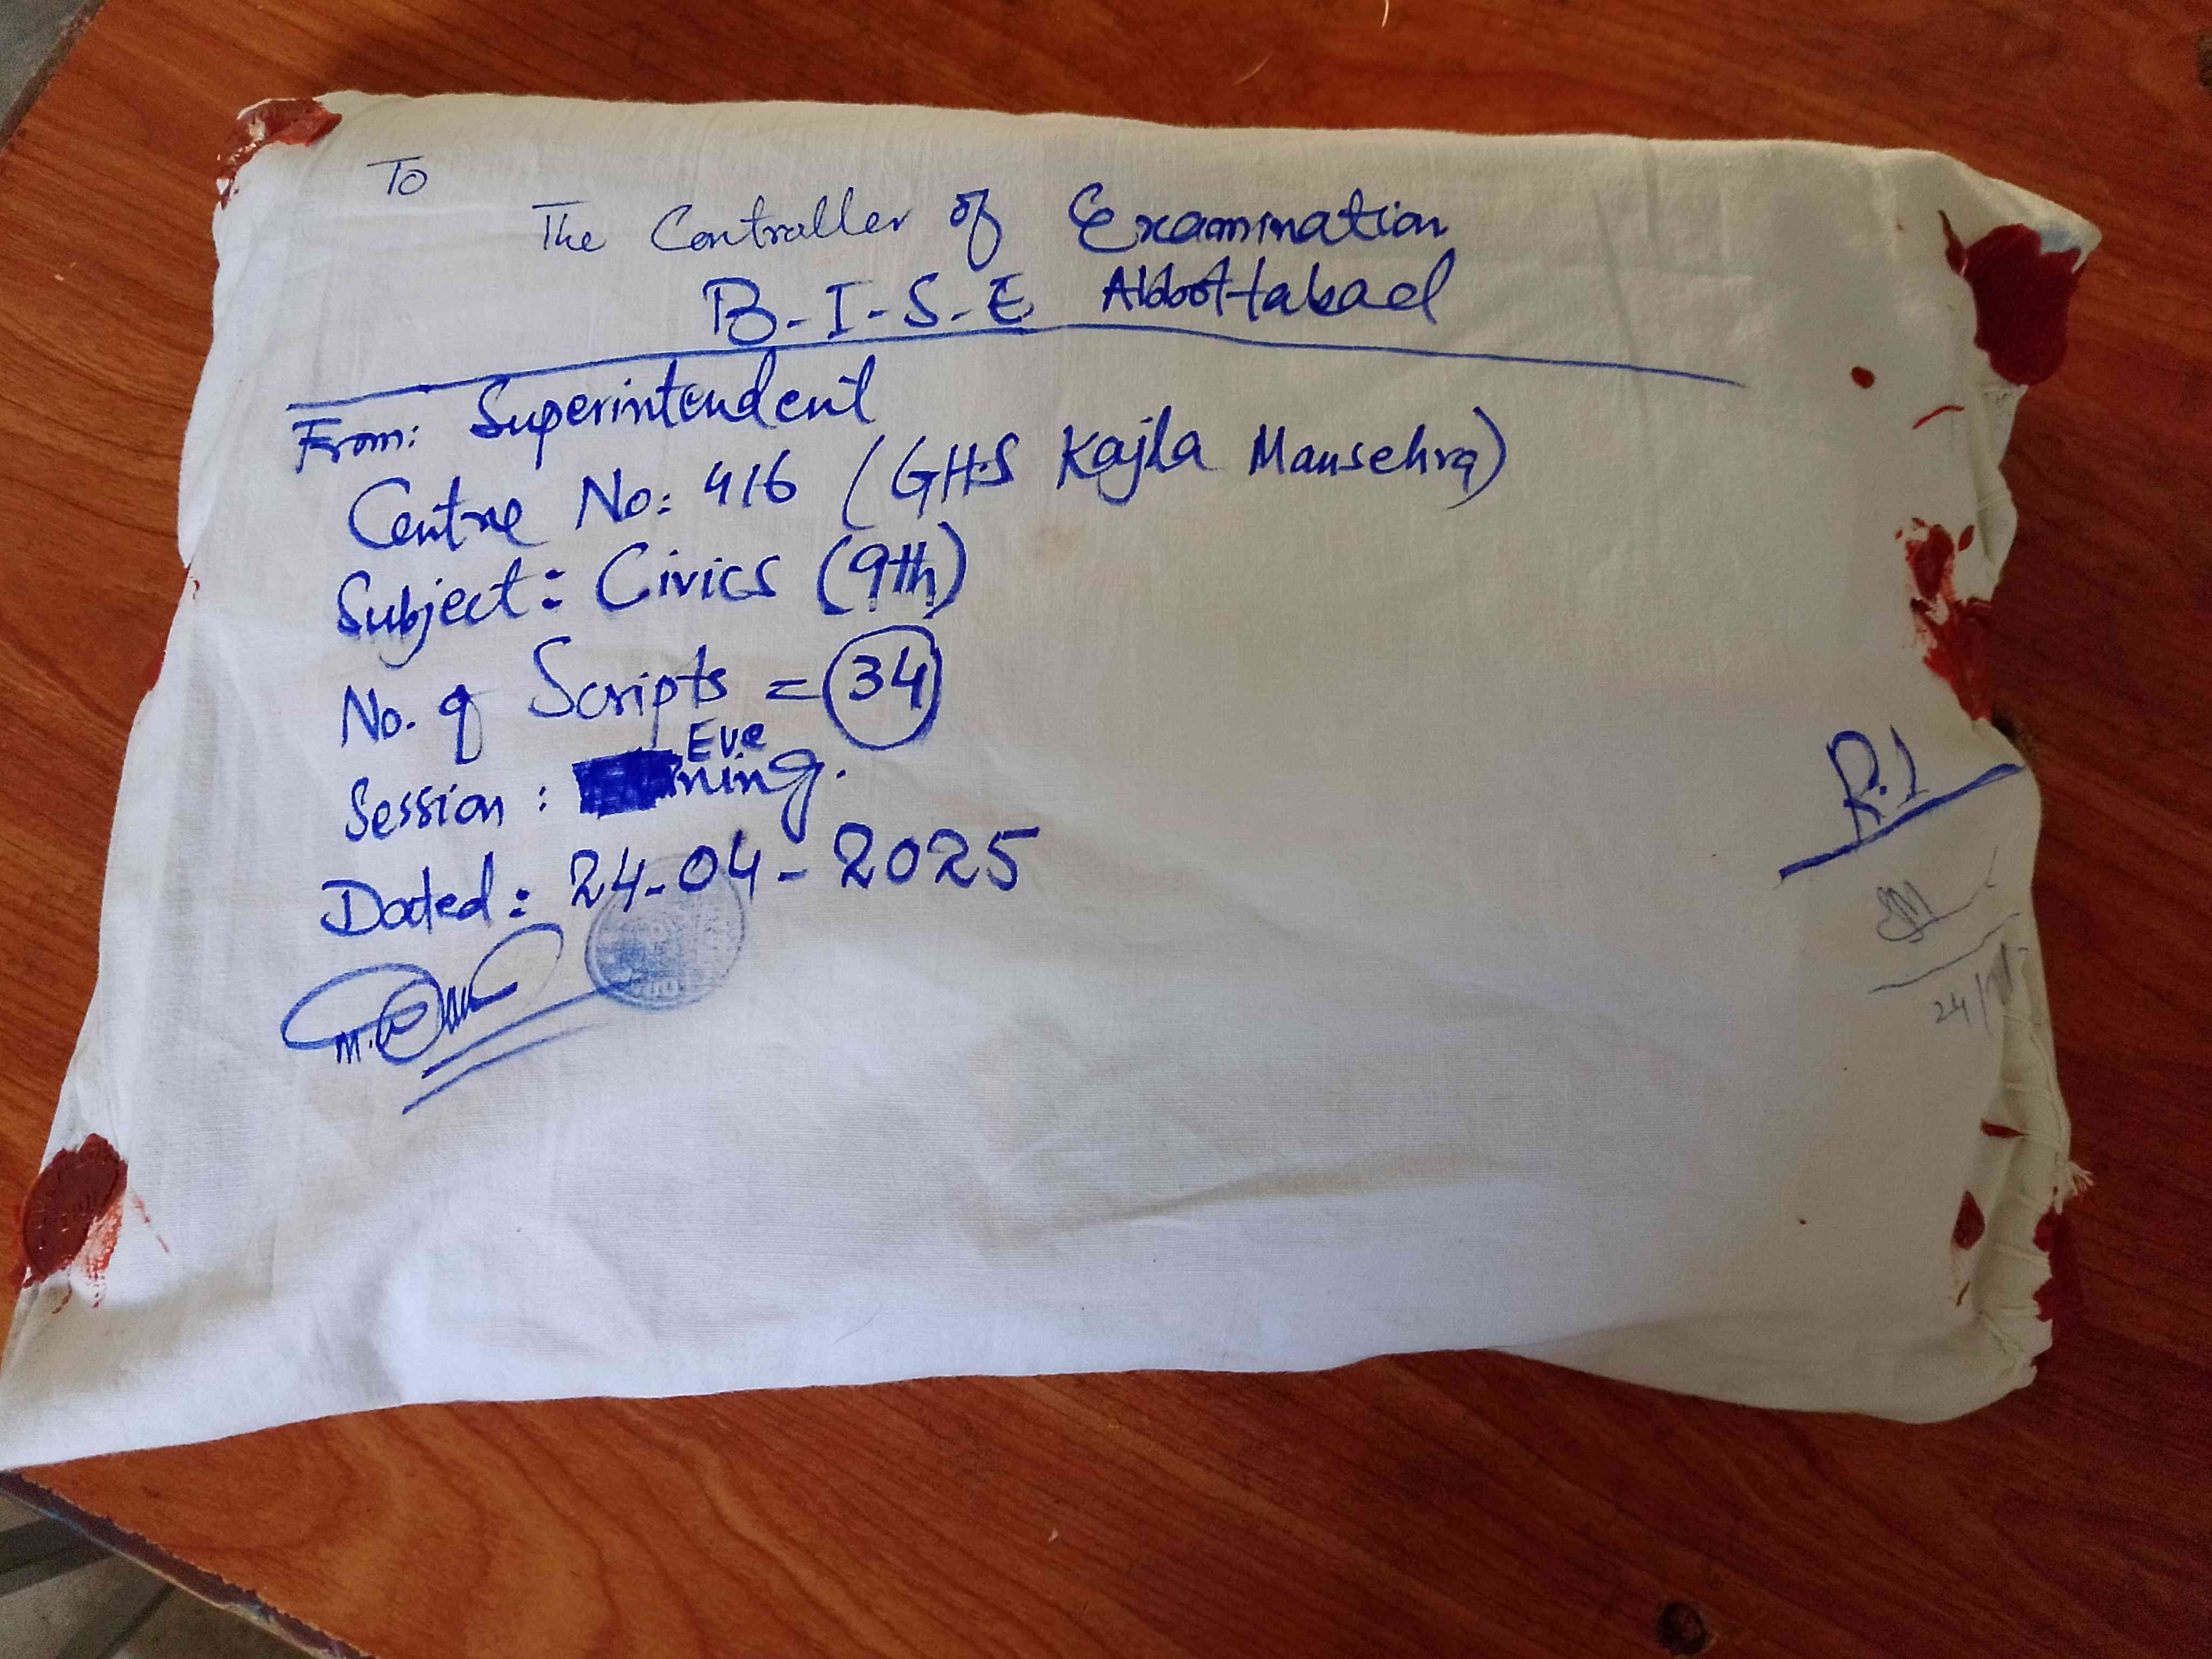 To
The Controller of Examination
B-I-S-E Abbottabad
From: Superintendent
Centre No: 416 (GHS Kajla Mansehra)
Subject: Civics (9th)
No. of Scripts = 34
Session: Evening.
Dated: 24-04-2025
R.1
24/